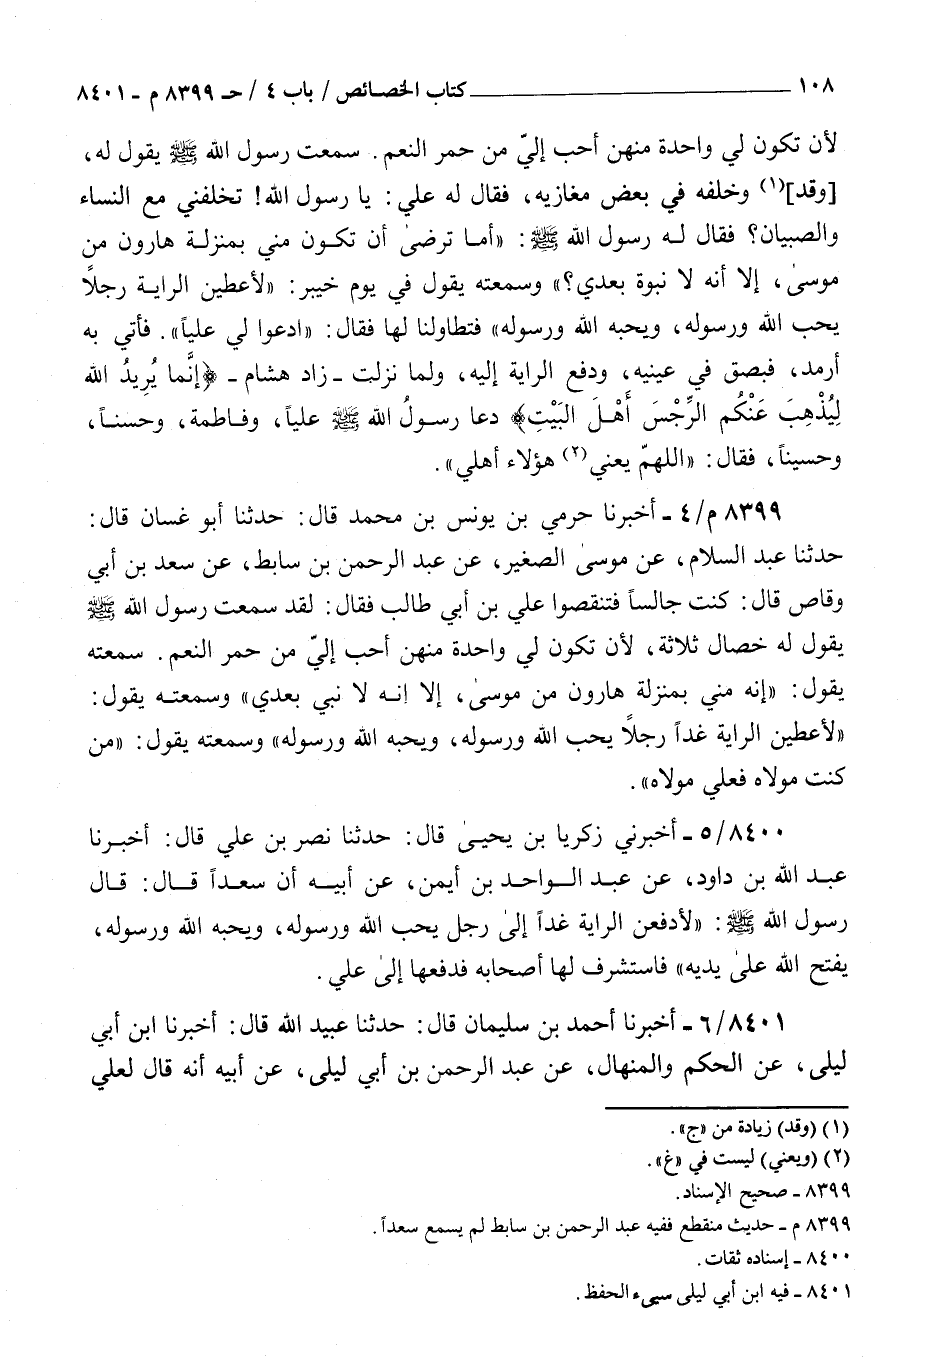 ١٠٨ ــــــــــــــــــــ كتاب الخصائص / باب ٤ / حـ ٨٣٩٩ م ـ ٨٤٠١
لأن تكون لي واحدة منهن أحب إليّ من حمر النعم. سمعت رسول الله ﷺ يقول له،
[وقد](١) وخلفه في بعض مغازيه، فقال له علي: يا رسول الله! تخلفني مع النساء
والصبيان؟ فقال له رسول الله ﷺ: «أما ترضىٰ أن تكون مني بمنزلة هارون من
موسىٰ، إلا أنه لا نبوة بعدي؟» وسمعته يقول في يوم خيبر: «لأعطين الراية رجلاً
يحب الله ورسوله، ويحبه الله ورسوله» فتطاولنا لها فقال: «ادعوا لي علياً». فأتي به
أرمد، فبصق في عينيه، ودفع الراية إليه، ولما نزلت ـ زاد هشام ـ ﴿إنَّما يُرِيدُ الله
لِيُذْهِبَ عَنْكُم الرِّجْسَ أَهْلَ البَيْتِ﴾ دعا رسولُ الله ﷺ علياً، وفاطمة، وحسناً،
وحسيناً، فقال: «اللهمّ يعني(٢) هؤلاء أهلي».
٨٣٩٩ م/٤ ـ أخبرنا حرمي بن يونس بن محمد قال: حدثنا أبو غسان قال:
حدثنا عبد السلام، عن موسىٰ الصغير، عن عبد الرحمن بن سابط، عن سعد بن أبي
وقاص قال: كنت جالساً فتنقصوا علي بن أبي طالب فقال: لقد سمعت رسول الله ﷺ
يقول له خصال ثلاثة، لأن تكون لي واحدة منهن أحب إليّ من حمر النعم. سمعته
يقول: «إنه مني بمنزلة هارون من موسىٰ، إلا انه لا نبي بعدي» وسمعته يقول:
«لأعطين الراية غداً رجلاً يحب الله ورسوله، ويحبه الله ورسوله» وسمعته يقول: «من
كنت مولاه فعلي مولاه».
٥/٨٤٠٠ ـ أخبرني زكريا بن يحيىٰ قال: حدثنا نصر بن علي قال: أخبرنا
عبد الله بن داود، عن عبد الواحد بن أيمن، عن أبيه أن سعداً قال: قال
رسول الله ﷺ: «لأدفعن الراية غداً إلىٰ رجل يحب الله ورسوله، ويحبه الله ورسوله،
يفتح الله علىٰ يديه» فاستشرف لها أصحابه فدفعها إلىٰ علي.
٦/٨٤٠١ ـ أخبرنا أحمد بن سليمان قال: حدثنا عبيد الله قال: أخبرنا ابن أبي
ليلى، عن الحكم والمنهال، عن عبد الرحمن بن أبي ليلى، عن أبيه أنه قال لعلي
(١) (وقد) زيادة من «ج».
(٢) (ويعني) ليست في «غ».
٨٣٩٩ ـ صحيح الإسناد.
٨٣٩٩ م ـ حديث منقطع ففيه عبد الرحمن بن سابط لم يسمع سعداً.
٨٤٠٠ ـ إسناده ثقات.
٨٤٠١ ـ فيه ابن أبي ليلى سيىء الحفظ.